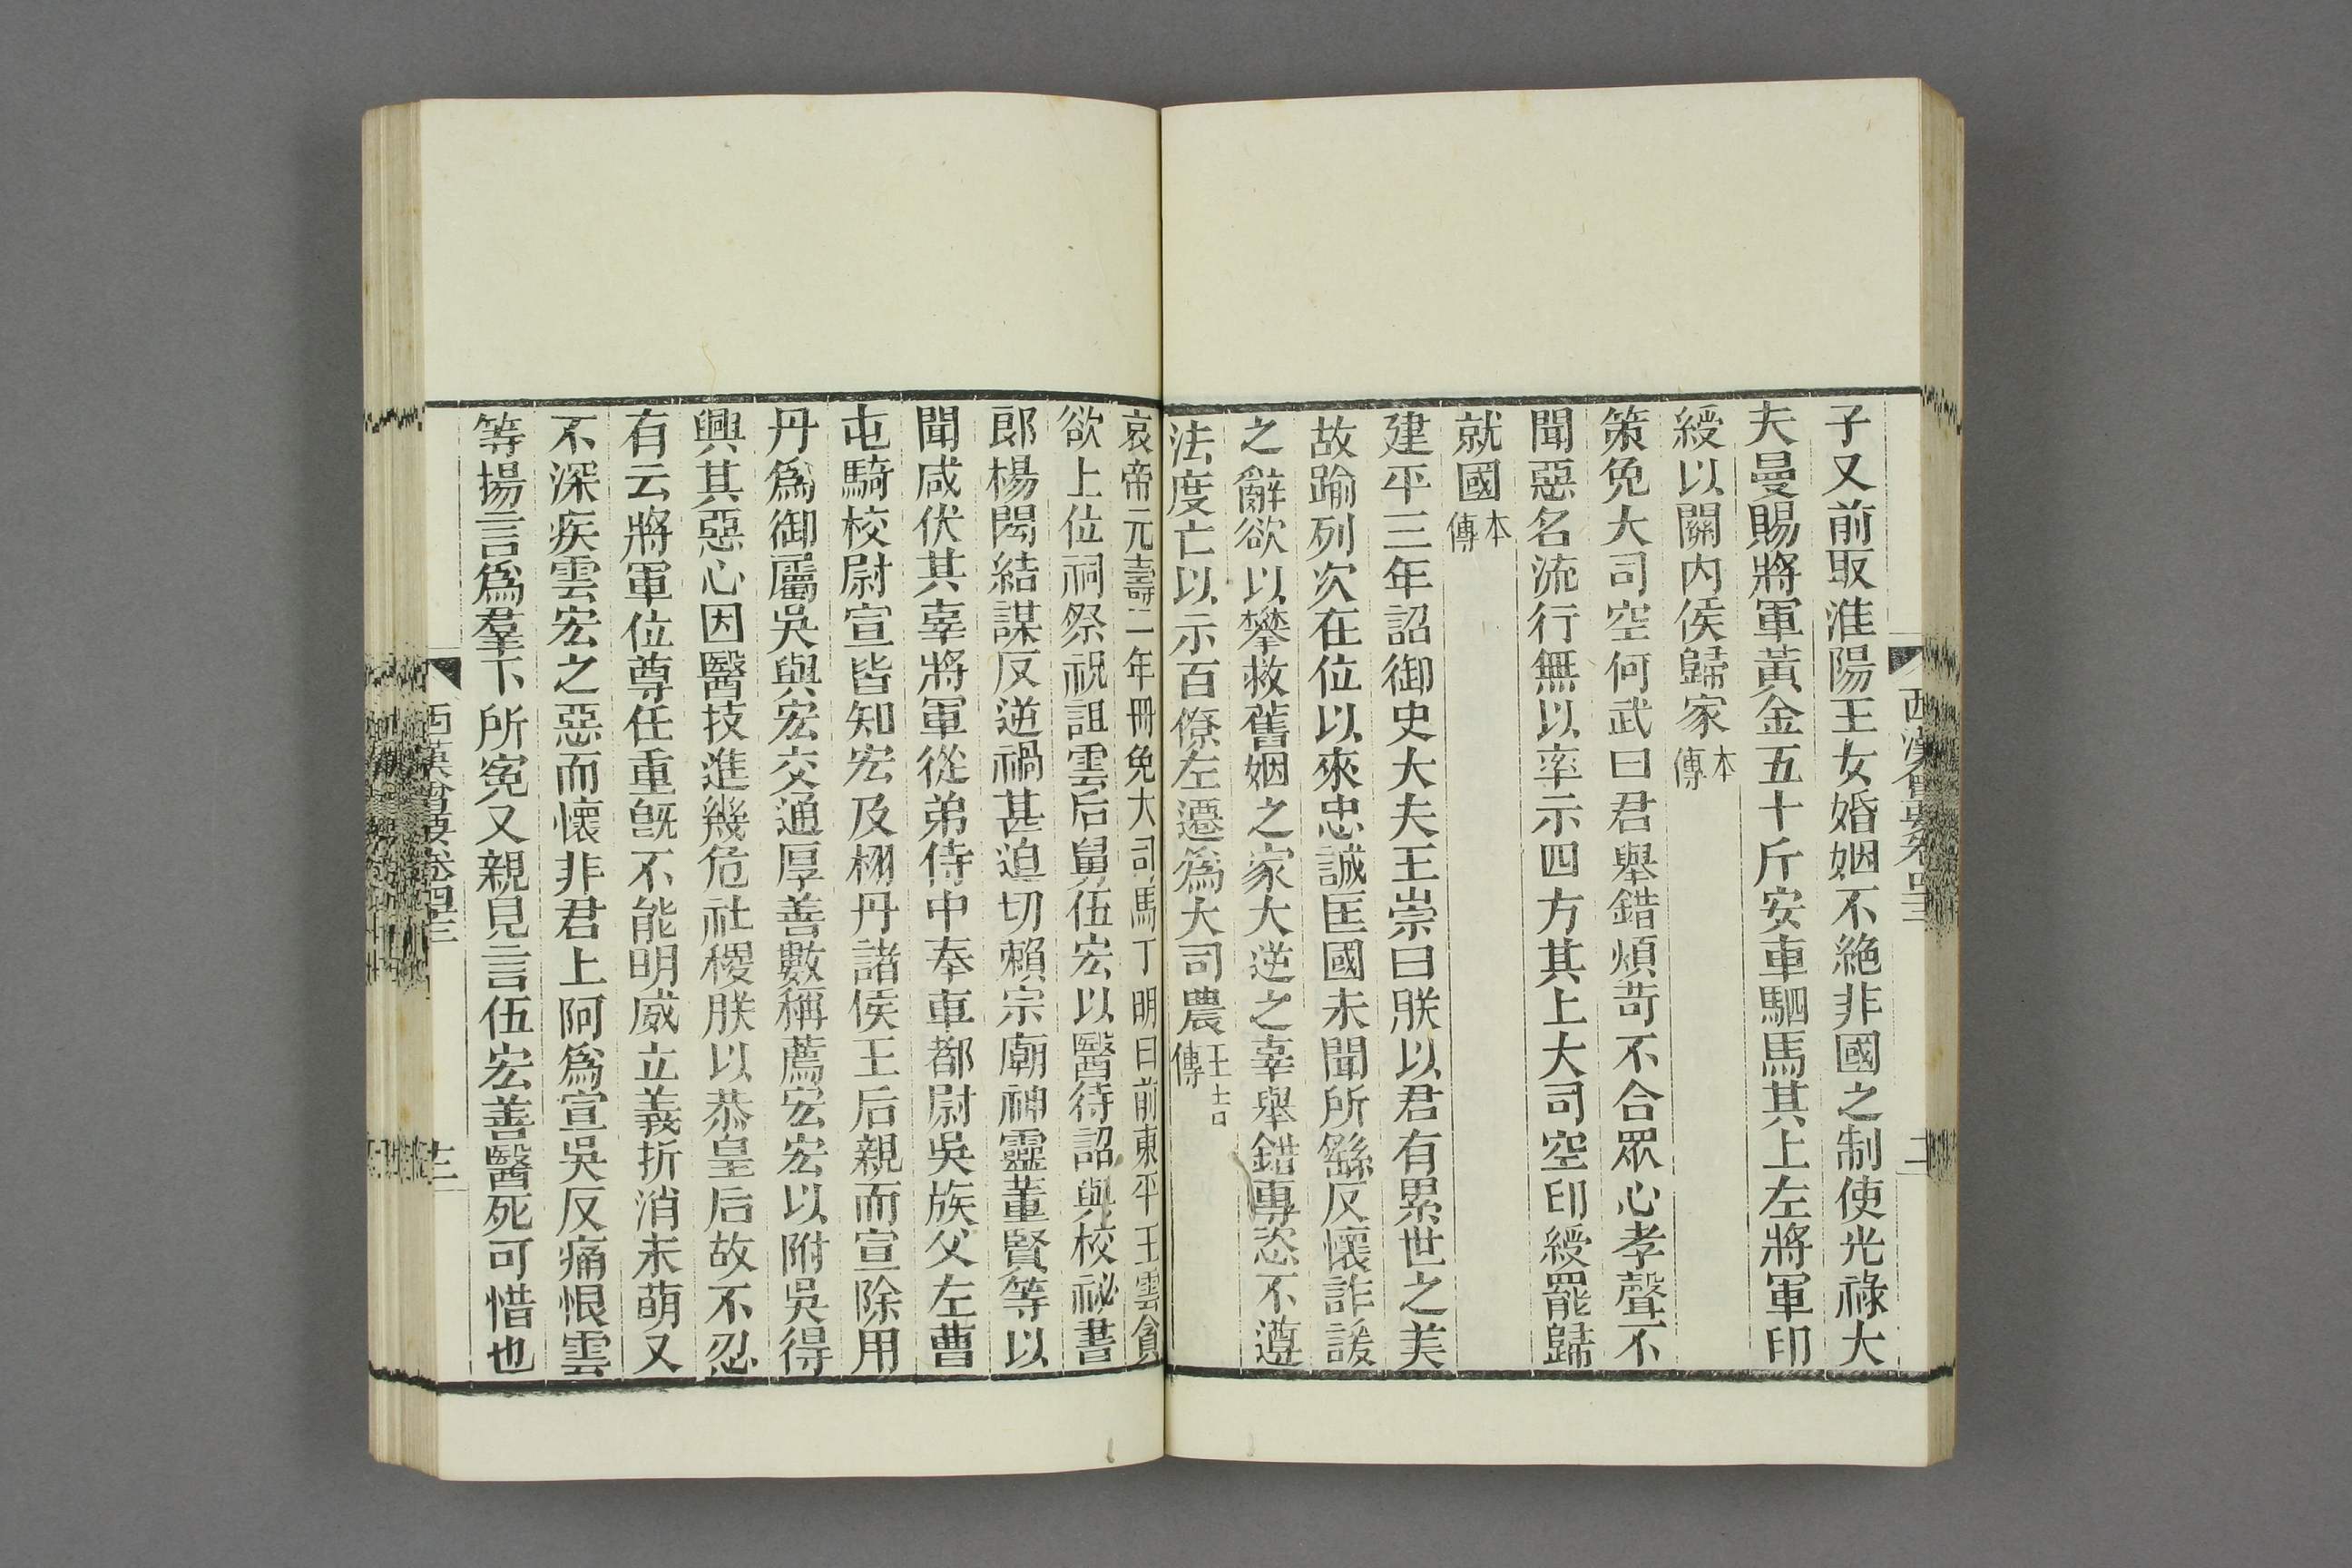 子又前取淮陽王女婚姻不絶非國之制使光祿大
夫曼賜將軍黃金五十斤安車駟馬其上左將軍印
綬以關內侯歸家本傳
策免大司空何武曰君舉錯煩苛不合眾心孝聲不
聞惡名流行無以率示四方其上大司空印綬罷歸
就國本傳
建平三年詔御史大夫王崇曰朕以君有累世之美
故踰列次在位以來忠誠匡國未聞所繇反懷詐諼
之辭欲以攀救舊姻之家大逆之辜舉錯專恣不遵
法度亡以示百僚左遷爲大司農王吉傳
哀帝元壽二年冊免大司馬丁明曰前東平王雲貪
欲上位祠祭祝詛雲后舅伍宏以醫待詔與校祕書
郎楊閎結謀反逆禍甚迫切賴宗廟神靈董賢等以
聞咸伏其辜將軍從弟侍中奉車都尉吳族父左曹
屯騎校尉宣皆知宏及栩丹諸侯王后親而宣除用
丹爲御屬吳與宏交通厚善數稱薦宏宏以附吳得
興其惡心因醫技進幾危社稷朕以恭皇后故不忍
有云將軍位尊任重旣不能明威立義折消未萌又
不深疾雲宏之惡而懷非君上阿爲宣吳反痛恨雲
等揚言爲羣下所寃又親見言伍宏善醫死可惜也